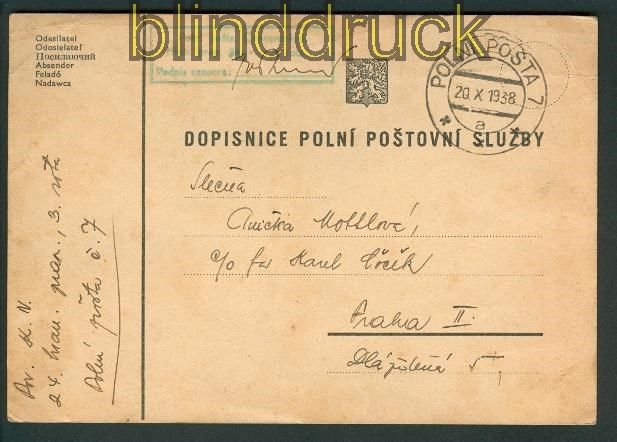 blinddruck
Odesílatel
Odosielateľ
Посилаючий
Absender
Feladó
Nadawca
Podpis censora:
POLNÍ POŠTA 7
20. X. 1938
a
DOPISNICE POLNÍ POŠTOVNÍ SLUŽBY
Slečna
Anička
c/o fa Karel
Praha II.
Dlážděná 5
3. rota
Polní pošta č. 7